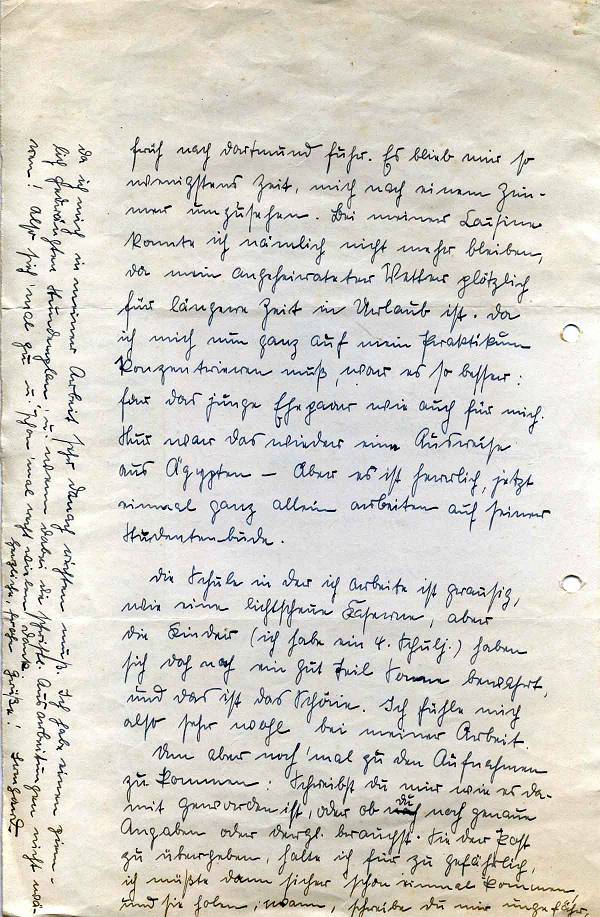 früh nach Dortmund fuhr. Es blieb mir so
wenigstens Zeit, mich nach einem Zim-
mer umzusehen. Bei meiner Cousine
konnte ich nämlich nicht mehr bleiben,
da mein angeheirateter Vetter plötzlich
für längere Zeit in Urlaub ist. Da
ich mich nun ganz auf mein Praktikum
konzentrieren muß, war es so besser:
für das junge Ehepaar wie auch für mich.
Nur war das wieder eine Ausreise
aus Ägypten – Aber es ist herrlich, jetzt
einmal ganz allein arbeiten auf seiner
Studentenbude.
Die Schule in der ich arbeite ist grausig,
wie eine lichtscheue Kaserne, aber
die Kinder (ich habe ein 4. Schulj.) haben
sich doch noch ein gut Teil Sonne bewahrt,
und das ist das Schöne. Ich fühle mich
also sehr wohl bei meiner Arbeit.
Um aber noch 'mal zu den Aufnahmen
zu kommen: Schreibst du mir wie es da-
mit geworden ist, oder ob du noch genaue
Angaben oder dergl. brauchst. Sie der Post
zu übergeben, halte ich für zu gefährlich,
ich müßte dann sicher schon einmal kommen,
und sie holen; wann, schreibe du mir ungefähr,
da ich mich in meiner Arbeit sehr danach richten muß. Ich habe einen ziem-
lich gedrängten Stundenplan, u. wenn dabei die schriftl. Ausarbeitungen nicht wä-
ren! Also sieh 'mal zu u. schon 'mal recht vielen Dank
herzliche Grüße!